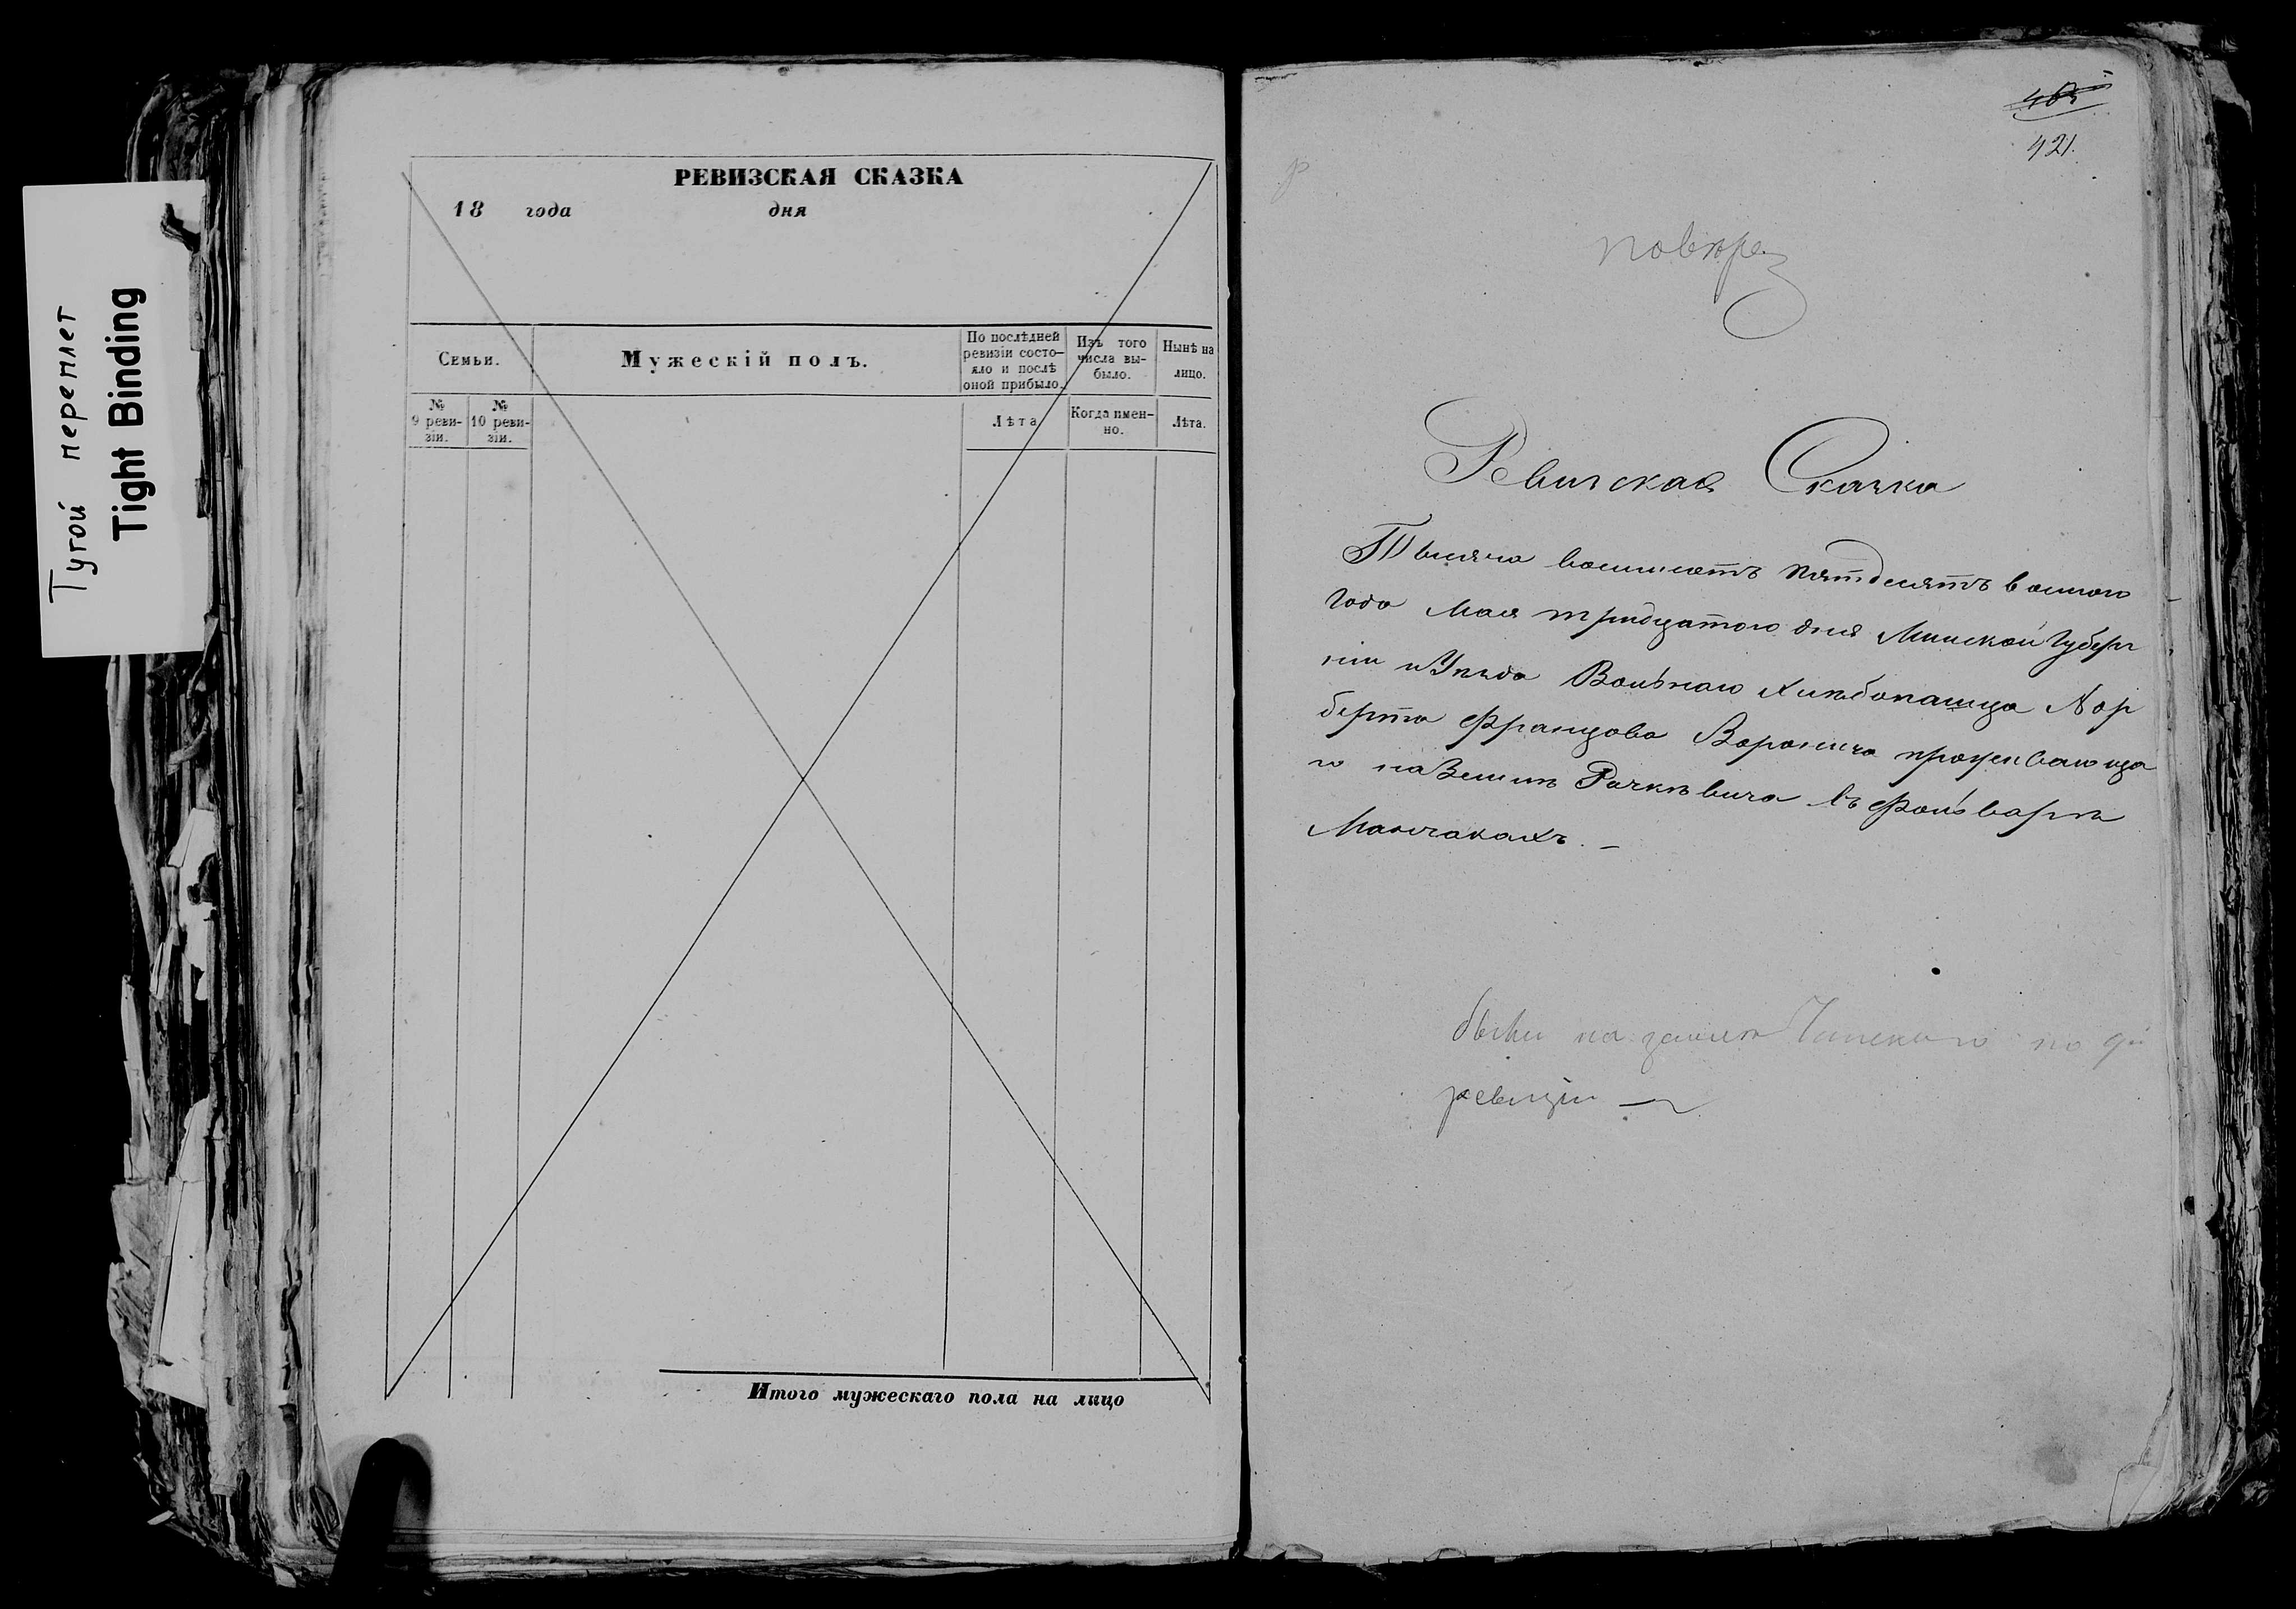 Тугой переплет
Tight Binding
РЕВИЗСКАЯ СКАЗКА
18 года дня
Семьи.
Мужескій полъ.
По послѣдней
ревизіи состо-
яло и послѣ
оной прибыло.
Изъ того
числа вы-
было.
Нынѣ на
лицо.
№
9 реви-
зіи.
№
10 реви-
зіи.
Лѣта
Когда имен-
но.
Лѣта.
Итого мужескаго пола на лицо
421.
Ревизская Сказка
Тысяча восемьсотъ пятдесятъ восмого
года Мая тридцатого дня Минской Губерн
ніи и Уѣзда Вольнаго Хлѣбопашца Нор
берта Францова Воронича проживающа
го на Земли Рачкѣвича въ Фольварке
были на земли Чапскаго по 9й
ревизіи